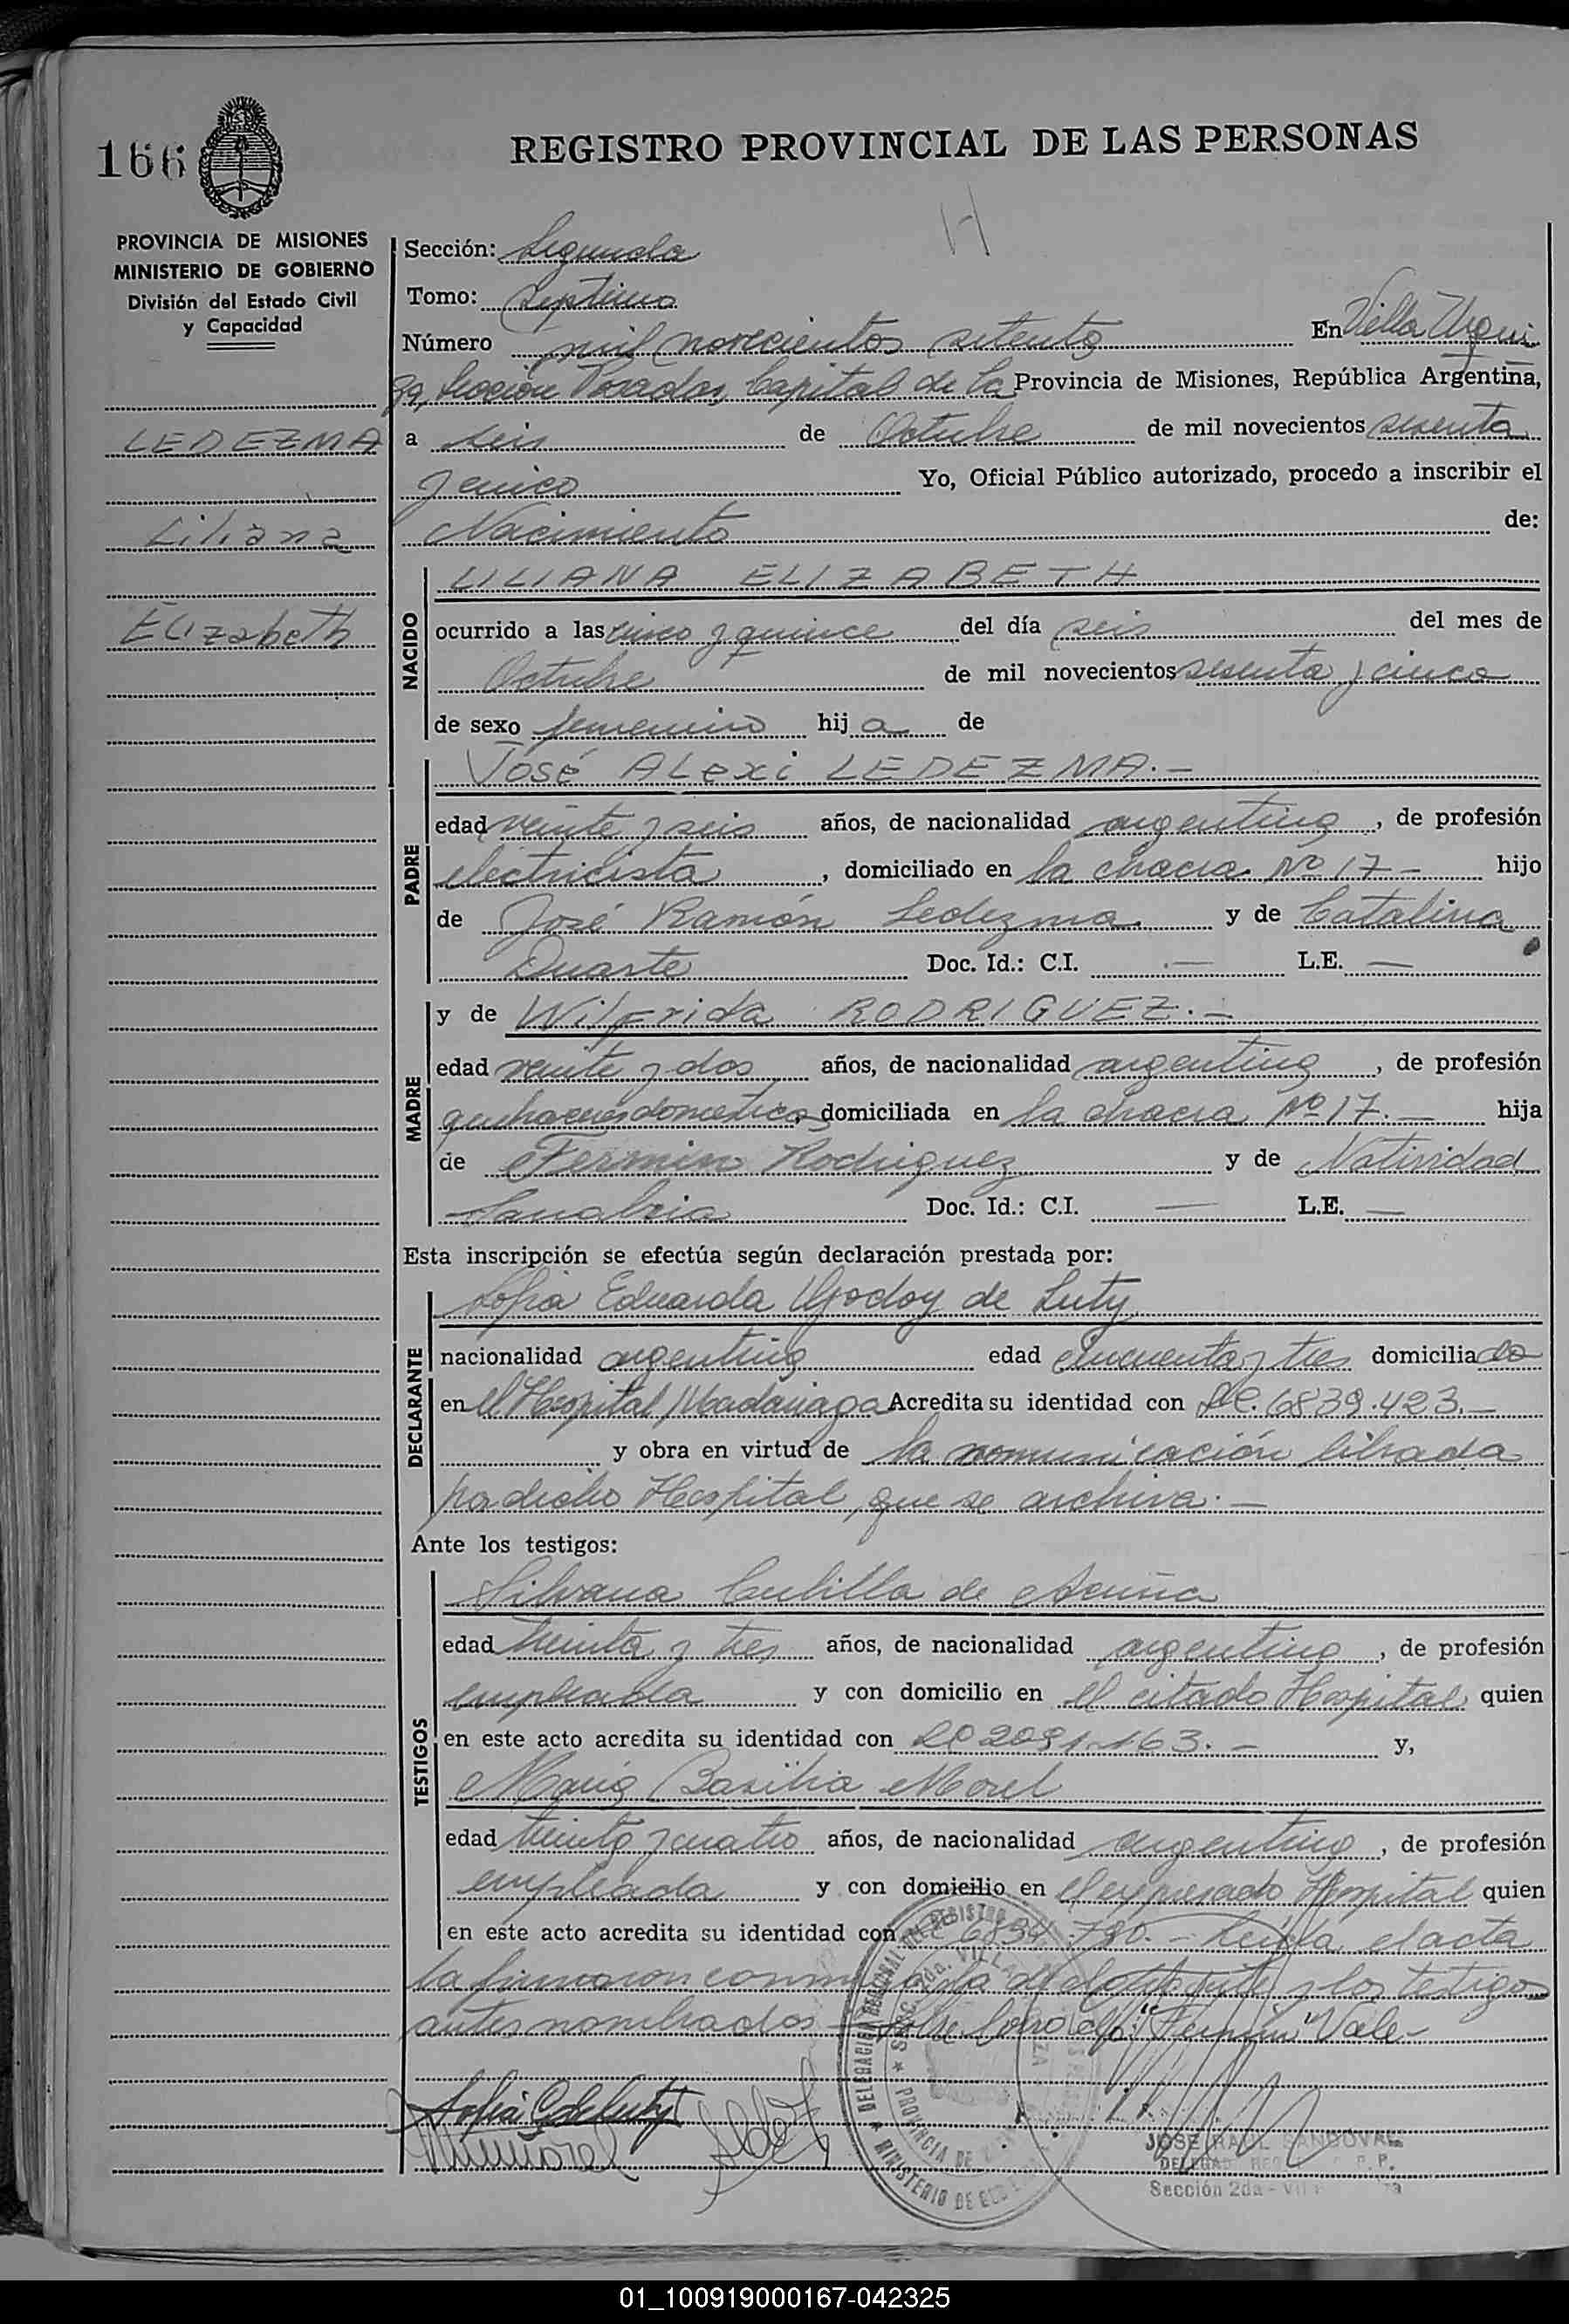 166
REGISTRO PROVINCIAL DE LAS PERSONAS
H
PROVINCIA DE MISIONES
MINISTERIO DE GOBIERNO
División del Estado Civil
y Capacidad
LEDEZMA
Liliana
Elizabeth
Sección: Segunda
Tomo: Septimo
Número mil novecientos setenta En Villa Urqui
za, Sección Posadas, Capital de la Provincia de Misiones, República Argentina,
a seis de Octubre de mil novecientos sesenta
y cinco Yo, Oficial Público autorizado, procedo a inscribir el
Nacimiento de:
NACIDO
LILIANA ELIZABETH
ocurrido a las cinco y quince del día seis del mes de
Octubre de mil novecientos sesenta y cinco
de sexo femenino hij a de
PADRE
José ALexi LEDEZMA.-
edad veinte y seis años, de nacionalidad argentina, de profesión
electricista, domiciliado en la chacra Nº 17 - hijo
de José Ramón Ledezma y de Catalina
Duarte Doc. Id.: C.I. — L.E. —
MADRE
y de Wilfrida RODRIGUEZ.-
edad veinte y dos años, de nacionalidad argentina, de profesión
quehaceres domesticos, domiciliada en la chacra Nº 17.- hija
de Fermin Rodriguez y de Natividad
Sanabria Doc. Id.: C.I. — L.E. —
Esta inscripción se efectúa según declaración prestada por:
DECLARANTE
Sofia Eduarda Godoy de Luty
nacionalidad argentina edad cincuenta y tres domicilia da
en el Hospital Madariaga Acredita su identidad con LC. 6839.423.-
y obra en virtud de la comunicación librada
por dicho Hospital, que se archiva.-
Ante los testigos:
TESTIGOS
Silvana Cubilla de Acuña
edad treinta y tres años, de nacionalidad argentina, de profesión
empleada y con domicilio en el citado Hospital quien
en este acto acredita su identidad con LC 2091.163.- y,
María Basilia Morel
edad treinta y cuatro años, de nacionalidad argentina, de profesión
empleada y con domicilio en el expresado Hospital quien
en este acto acredita su identidad con LC 6834.780.- Leída el acta
la firmaron conmigo la declarante y los testigos
antes nombrados - Sobre borrado: "Fermin" Vale-
Sofia G de Luty
DELEGACION REGIONAL DEL REGISTRO
MINISTERIO DE GOB
PROVINCIA DE
JOSE RAUL SANDOVAL
Sección 2da - Vil
01_100919000167-042325